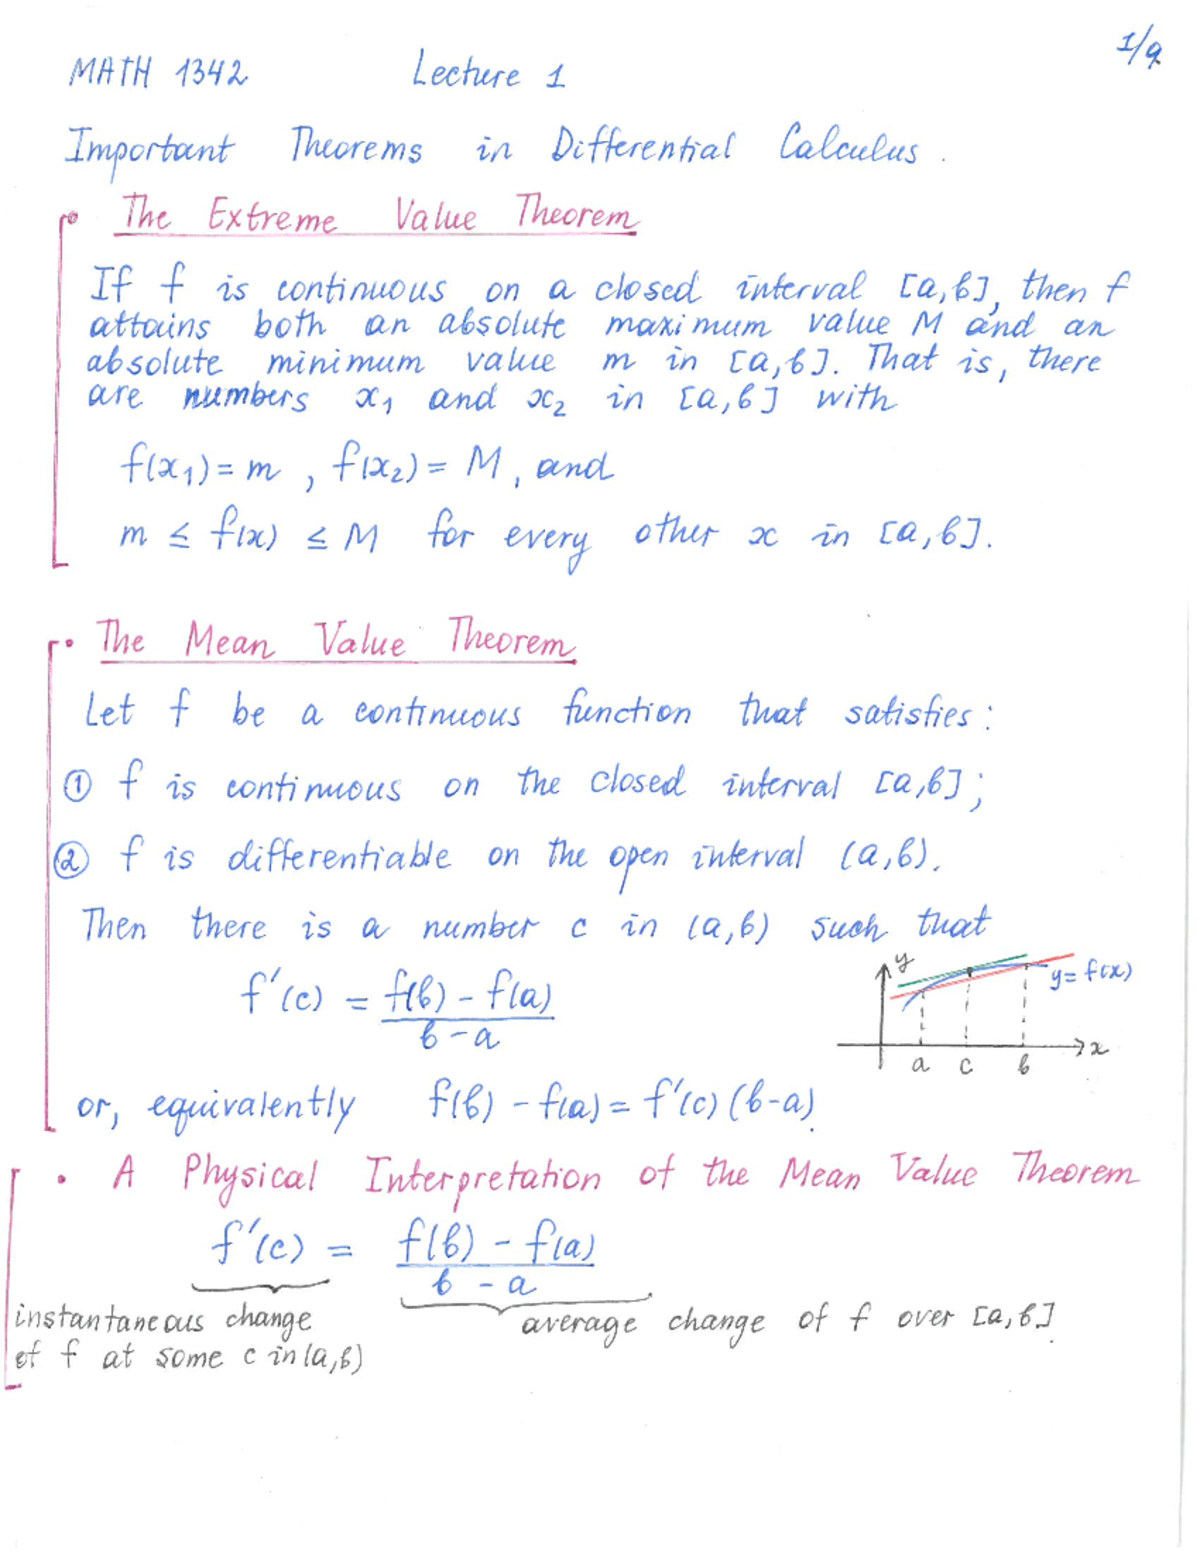 1/9
MATH 1342 Lecture 1
Important Theorems in Differential Calculus.
• The Extreme Value Theorem
If f is continuous on a closed interval [a,b], then f
attains both an absolute maximum value M and an
absolute minimum value m in [a,b]. That is, there
are numbers x₁ and x₂ in [a,b] with
f(x₁) = m , f(x₂) = M , and
m ≤ f(x) ≤ M for every other x in [a,b].
• The Mean Value Theorem
Let f be a continuous function that satisfies:
① f is continuous on the closed interval [a,b];
② f is differentiable on the open interval (a,b).
Then there is a number c in (a,b) such that
f'(c) = f(b) - f(a)
b - a
y
y = f(x)
x
a c b
or, equivalently f(b) - f(a) = f'(c) (b-a).
• A Physical Interpretation of the Mean Value Theorem
f'(c) = f(b) - f(a)
b - a
instantaneous change
of f at some c in (a,b)
average change of f over [a,b].